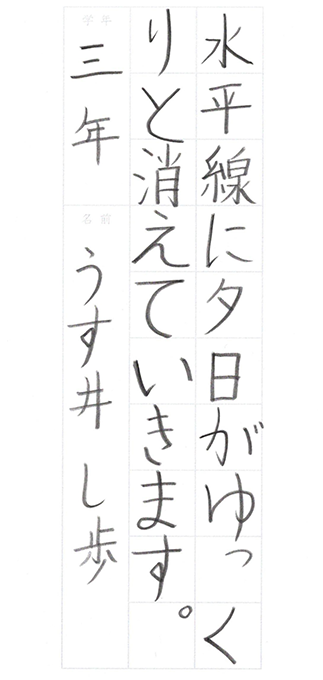 水平線に夕日がゆっく
りと消えています。
学年
三年
名前
うす井し歩